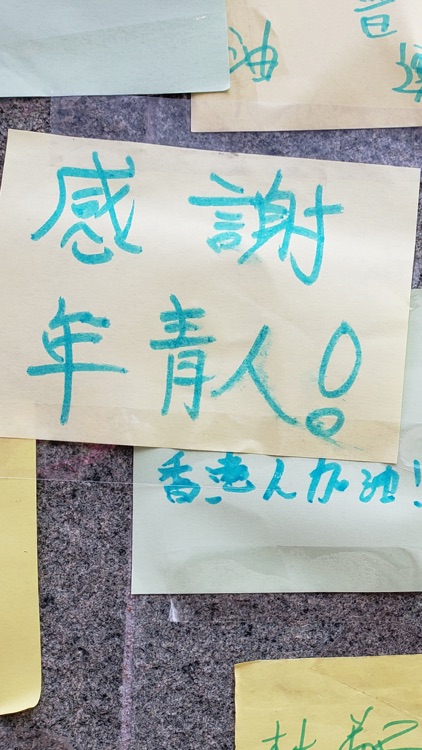 油
感謝
年青人!
香港人加油!